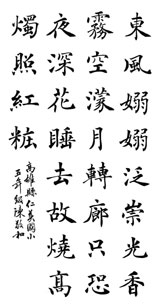 東風嫋嫋泛崇光香
霧空濛月轉廊只恐
夜深花睡去故燒髙
燭照紅粧
高雄縣仁美國小
五年級陳敬和